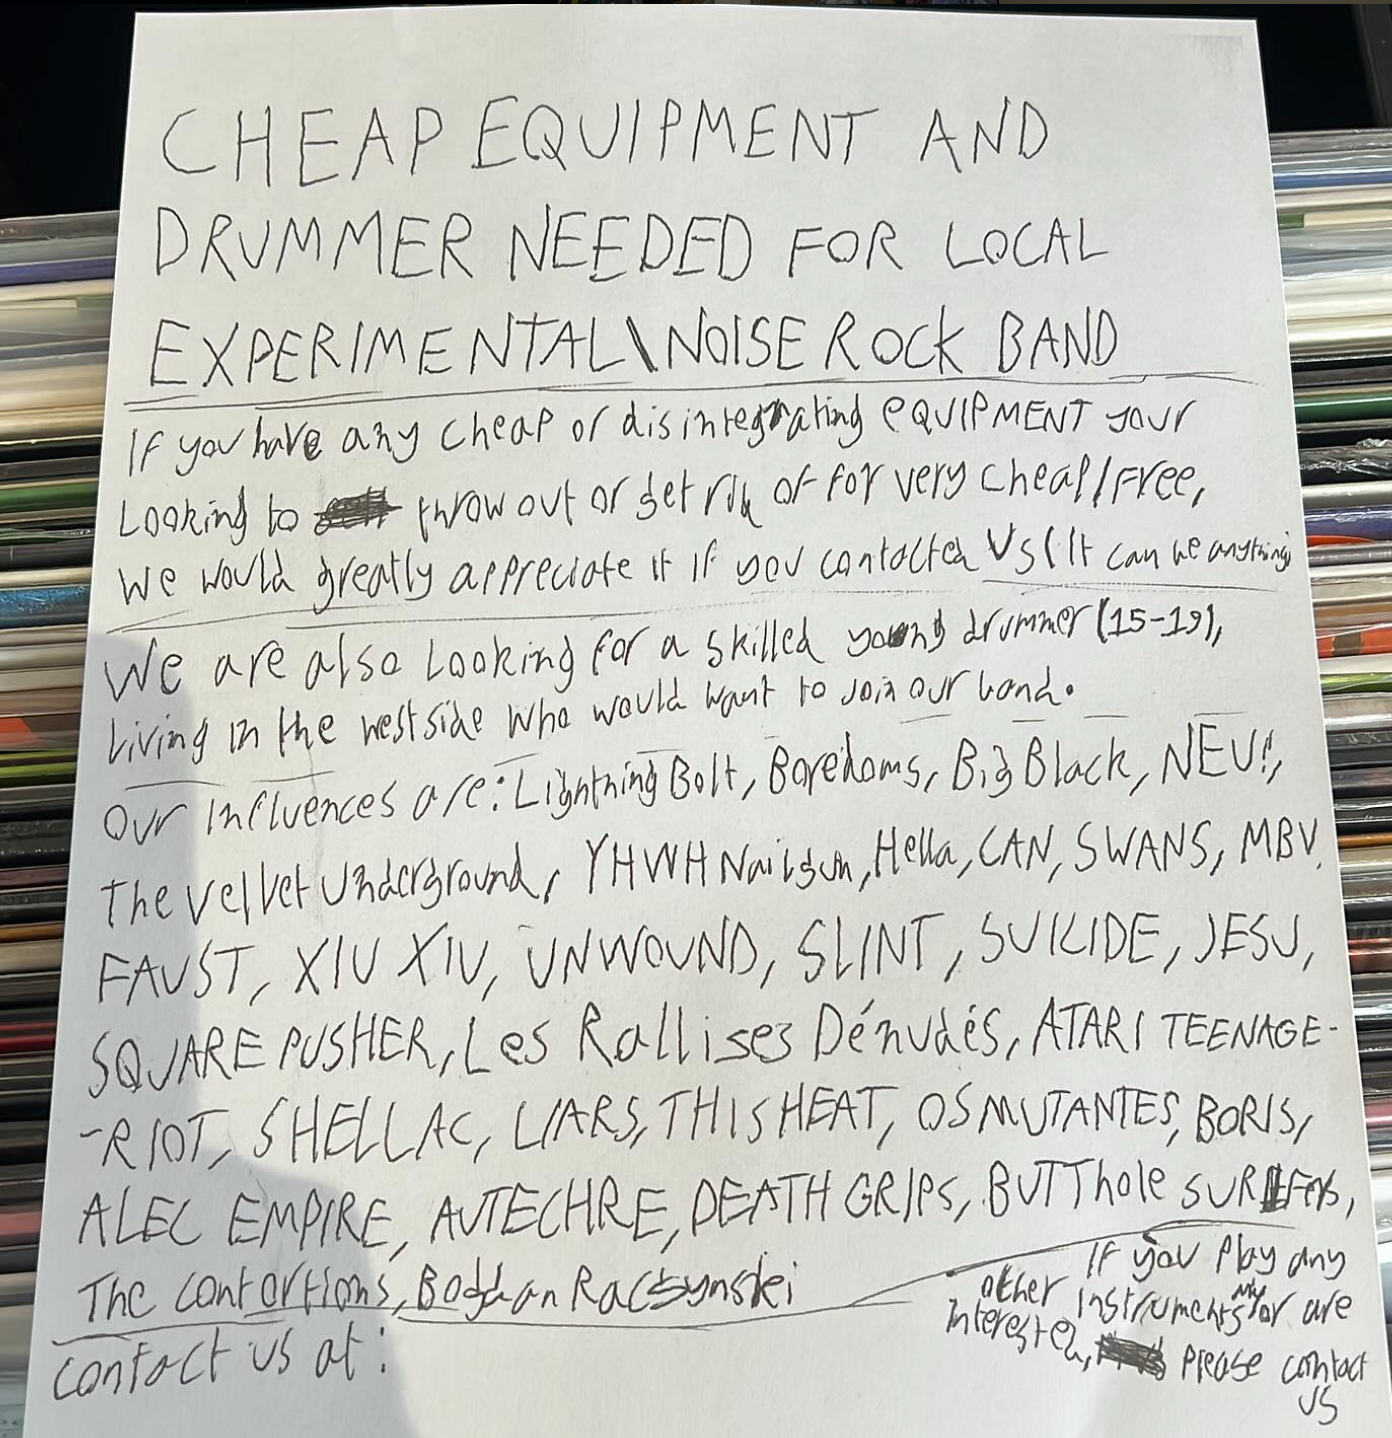 CHEAP EQUIPMENT AND
DRUMMER NEEDED FOR LOCAL
EXPERIMENTAL\NOISE ROCK BAND
If you have any cheap or disintegrating EQUIPMENT your
Looking to throw out or get rid of for very cheap/Free,
We would greatly appreciate it if you contacted Us (It can be anything)
We are also Looking for a skilled young drummer (15-19),
Living in the westside who would want to join our band.
Our influences are: Lightning Bolt, Boredoms, Big Black, NEU!,
The Velvet Underground, YHWH Nailgun, Hella, CAN, SWANS, MBV,
FAUST, XIU XIU, UNWOUND, SLINT, SUICIDE, JESU,
SQUARE PUSHER, Les Rallises Dénudés, ATARI TEENAGE-
-RIOT, SHELLAC, LIARS, THIS HEAT, OS MUTANTES, BORIS,
ALEC EMPIRE, AUTECHRE, DEATH GRIPS, BUTThole SURFers,
The contortions, Bogdan Raczynski
contact us at:
If you play any
other instruments or are
interested, please contact
us